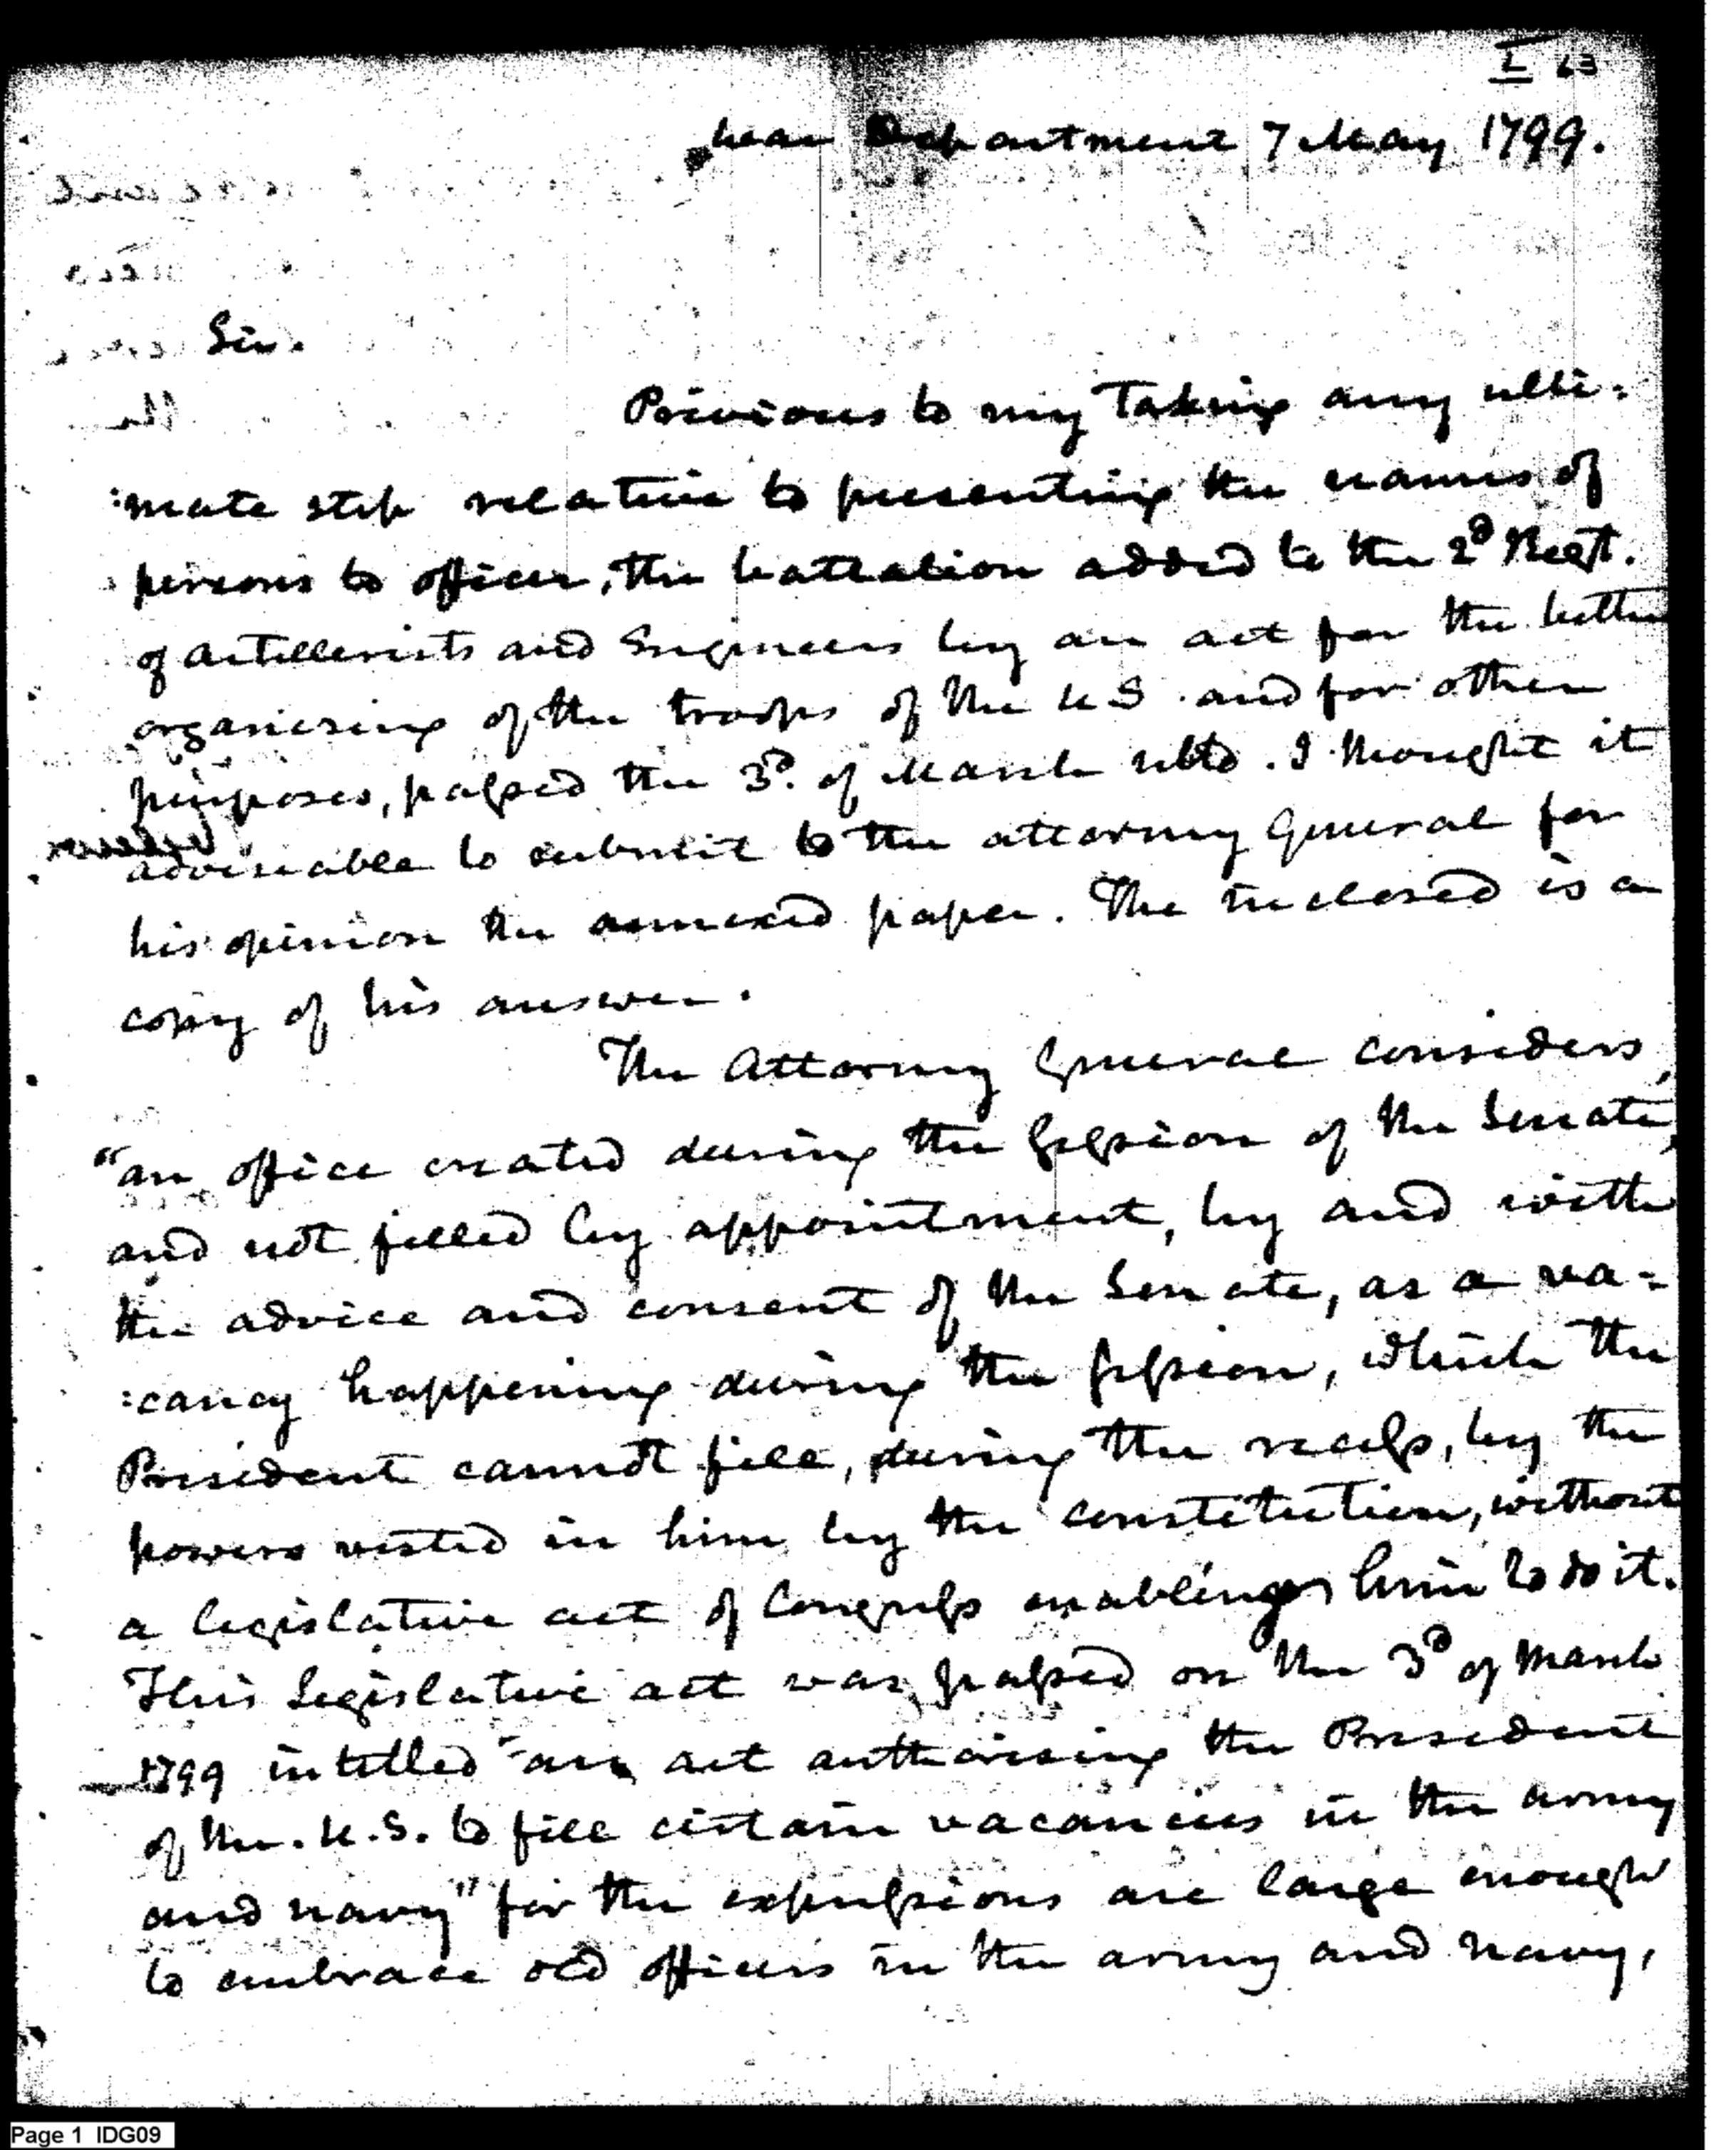 I 63
War Department 7 May 1799.
Sir.
Previous to my Taking any ulti:
:mate step relative to presenting the names of
persons to officer, the battalion added to the 2d Regt.
of artillerists and Engineers by an act for the better
organising of the troops of the U S and for other
purposes, passed the 3d. of March ulto. I thought it
adviseable to submit to the attorney General for
his opinion the annexed paper. The inclosed is a
copy of his answer.
The Attorney General considers,
"an office created during the session of the Senate,
and not filled by appointment, by and with
the advice and consent of the Senate, as a va-
:cancy happening during the session, which the
President cannot fill, during the recess, by the
powers vested in him by the constitution, without
a legislative act of Congress enabling him to do it.
This Legislative act was passed on the 3d of March
1799 intitled "an act authorising the President
of the U.S. to fill certain vacancies in the army
and navy" for the expressions are large enough
to embrace old officers in the army and navy,
Page 1 IDG09